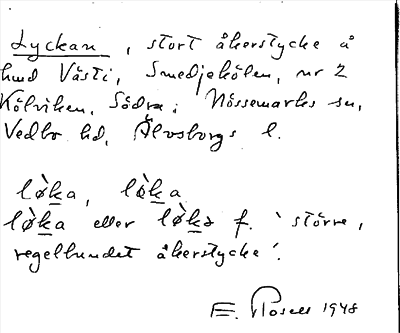 Lyckan, stort åkerstycke å
hmd Västi, Smedjekölen, nr 2
Kölviken, Södra; Nössemarks sn,
Vedbo hd, Älvsborgs l.
lø̀ka, lø̀ka
lø̀ka eller lø̀kə f. 'större,
regelbundet åkerstycke'.
E. 1948